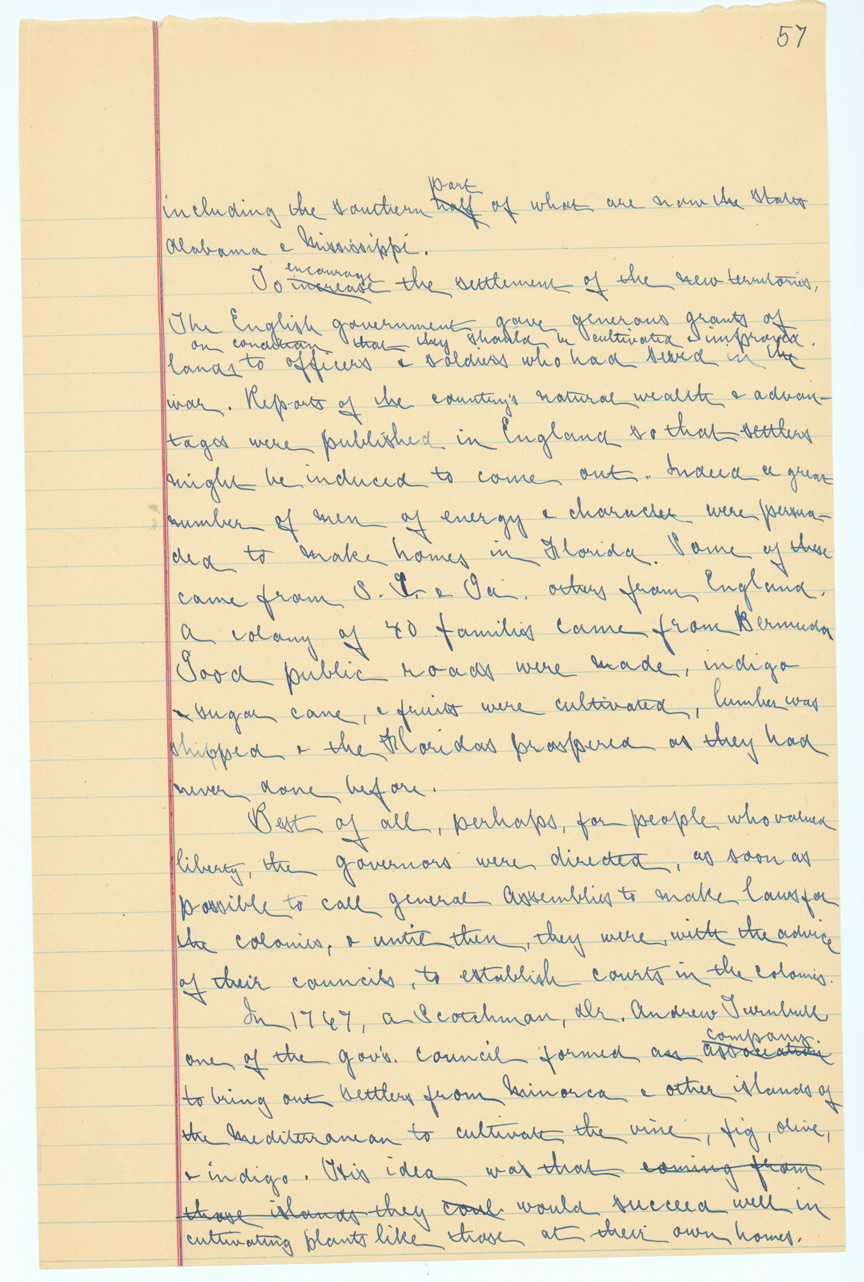 57
part
including the southern half of what are now the states
Alabama & Mississippi.
encourage
To increase the settlement of the new territories,
The English government gave generous grants of
on condition that they should be cultivated & improved.
lands to officers & soldiers who had served in the
war. Reports of the country's natural wealth & advan-
tages were published in England so that settlers
might be induced to come out. Indeed a great
number of men of energy & character were persua-
ded to make homes in Florida. Some of these
came from S. C. & Ga. others from England.
A colony of 40 families came from Bermuda
Good public roads were made, indigo
& sugar cane, & fruits were cultivated, lumber was
shipped & the Floridas prospered as they had
never done before.
Best of all, perhaps, for people who valued
liberty, the governors were directed, as soon as
possible to call general assemblies to make laws for
the colonies, & until then, they were, with the advice
of their councils, to establish courts in the colonies.
In 1767, a Scotchman, Dr. Andrew Turnbull
company.
one of the gov's. council formed an association
to bring out settlers from Minorca & other islands of
the Mediterranean to cultivate the vine, fig, olive,
& indigo. His idea was that coming from
those islands they coul would succeed well in
cultivating plants like those at their own homes.